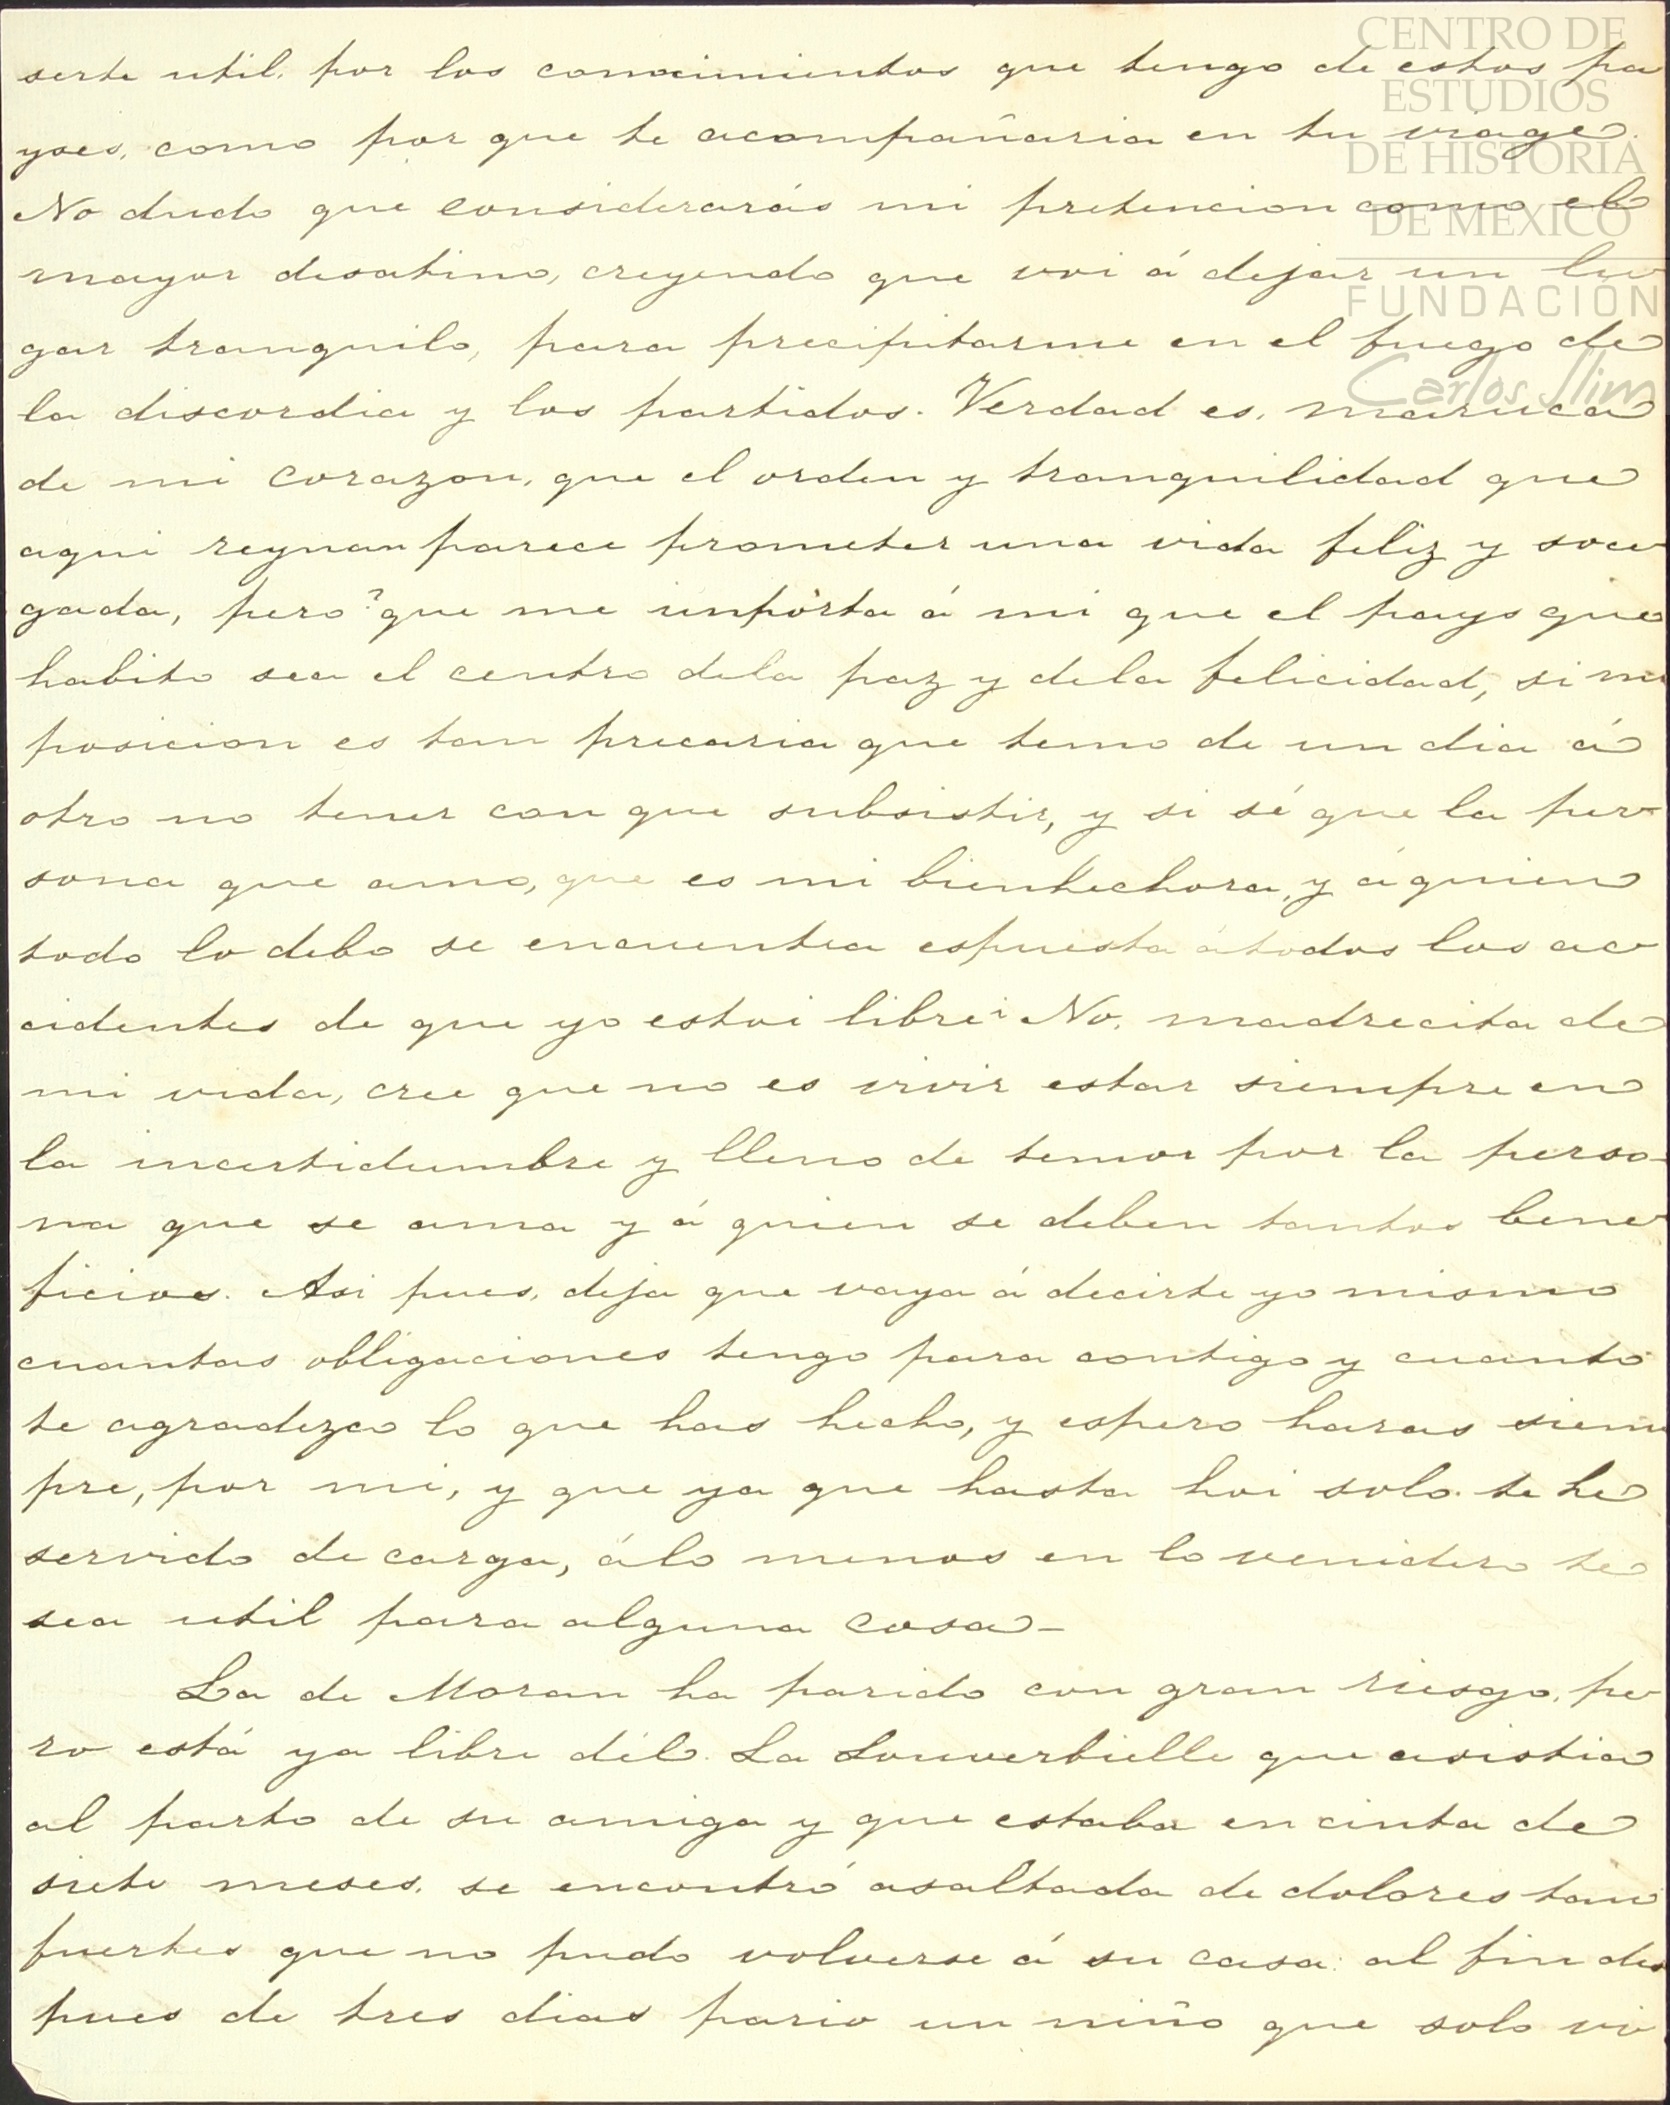 serte util, por los conocimientos que tengo de estos pa
yses, como por que te acompañaria en tu viage.
No dudo que considerarás mi pretencion como el
mayor desatino, creyendo que voi á dejar un lu
gar tranquilo, para precipitarme en el fuego de
la discordia y los partidos. Verdad es, maruca
de mi corazon, que el orden y tranquilidad que
aqui reynan parece prometer una vida feliz y soce
gada, pero ? que me importa á mi que el pays que
habito sea el centro dela paz y dela felicidad, si mi
posicion es tan precaria que temo de un dia á
otro no tener con que subsistir, y si sé que la per
sona que amo, que es mi bienhechora, y á quien
todo lo debo se encuentra espuesta átodos los ac
cidentes de que yo estoi libre¿ No, madrecita de
mi vida, cree que no es vivir estar siempre en
la incertidumbre y lleno de temor por la perso-
na que se ama y á quien se deben tantos bene
ficios. Asi pues, deja que vaya á decirte yo mismo
cuantas obligaciones tengo para contigo y cuanto
te agradezco lo que has hecho, y espero haras siem
pre, por mi, y que ya que hasta hoi solo te he
servido de carga, álo menos en lo venidero te
sea util para alguna cosa-
La de Moran ha parido con gran riesgo, pe
ro está ya libre dél. La Louverbielle que asistia
al parto de su amiga y que estaba en cinta de
siete meses, se encontró asaltada de dolores tan
fuertes que no pudo volverse á su casa: al fin des
pues de tres dias pario un niño que solo vi
CENTRO DE
ESTUDIOS
DE HISTORIA
DE MEXICO
FUNDACIÓN
Carlos Slim